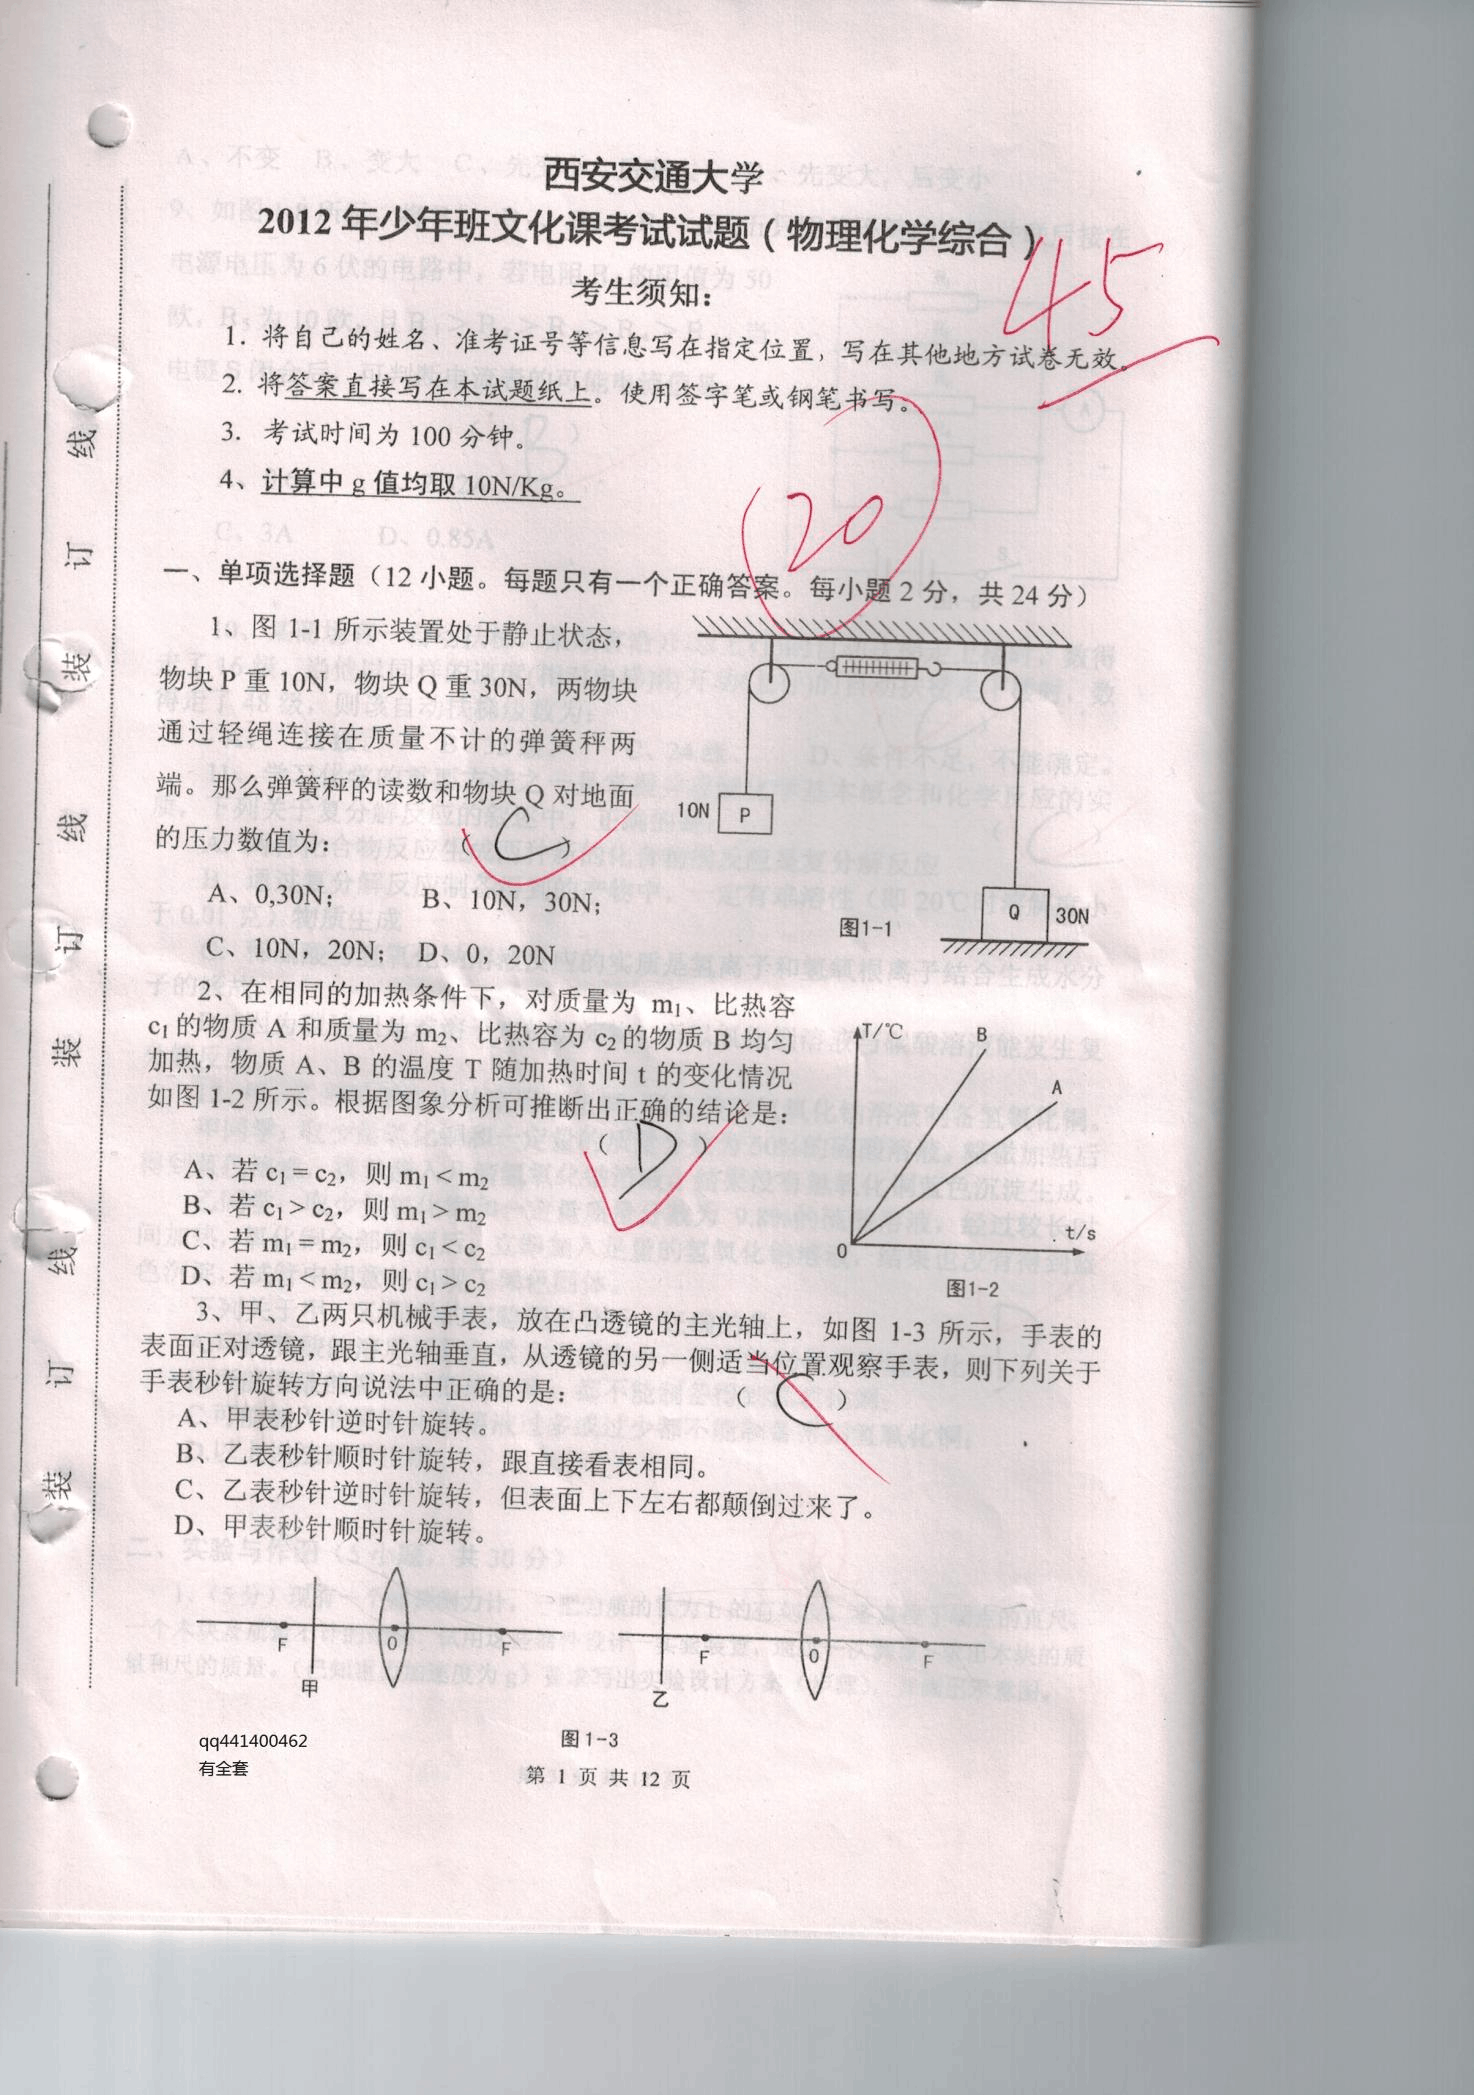 西安交通大学
2012年少年班文化课考试试题(物理化学综合)
45
考生须知:
1. 将自己的姓名、准考证号等信息写在指定位置,写在其他地方试卷无效。
2. 将答案直接写在本试题纸上。使用签字笔或钢笔书写。
3. 考试时间为100分钟。
4、计算中g值均取10N/Kg。
(20)
一、单项选择题(12小题。每题只有一个正确答案。每小题2分,共24分)
1、图1-1所示装置处于静止状态,
物块P重10N,物块Q重30N,两物块
通过轻绳连接在质量不计的弹簧秤两
端。那么弹簧秤的读数和物块Q对地面
的压力数值为: ( C )
A、0,30N; B、10N,30N;
C、10N,20N; D、0,20N
10N P
Q 30N
图1-1
2、在相同的加热条件下,对质量为 m₁、比热容
c₁的物质A和质量为m₂、比热容为c₂的物质B均匀
加热,物质A、B的温度T随加热时间t的变化情况
如图1-2所示。根据图象分析可推断出正确的结论是:
( D )
A、若c₁=c₂,则m₁<m₂
B、若c₁>c₂,则m₁>m₂
C、若m₁=m₂,则c₁<c₂
D、若m₁<m₂,则c₁>c₂
T/℃
B
A
0
t/s
图1-2
3、甲、乙两只机械手表,放在凸透镜的主光轴上,如图1-3所示,手表的
表面正对透镜,跟主光轴垂直,从透镜的另一侧适当位置观察手表,则下列关于
手表秒针旋转方向说法中正确的是: ( C )
A、甲表秒针逆时针旋转。
B、乙表秒针顺时针旋转,跟直接看表相同。
C、乙表秒针逆时针旋转,但表面上下左右都颠倒过来了。
D、甲表秒针顺时针旋转。
F 甲 O F
乙 F O F
图1-3
qq441400462
有全套
第 1 页 共 12 页
线
订
装
线
订
装
线
订
装